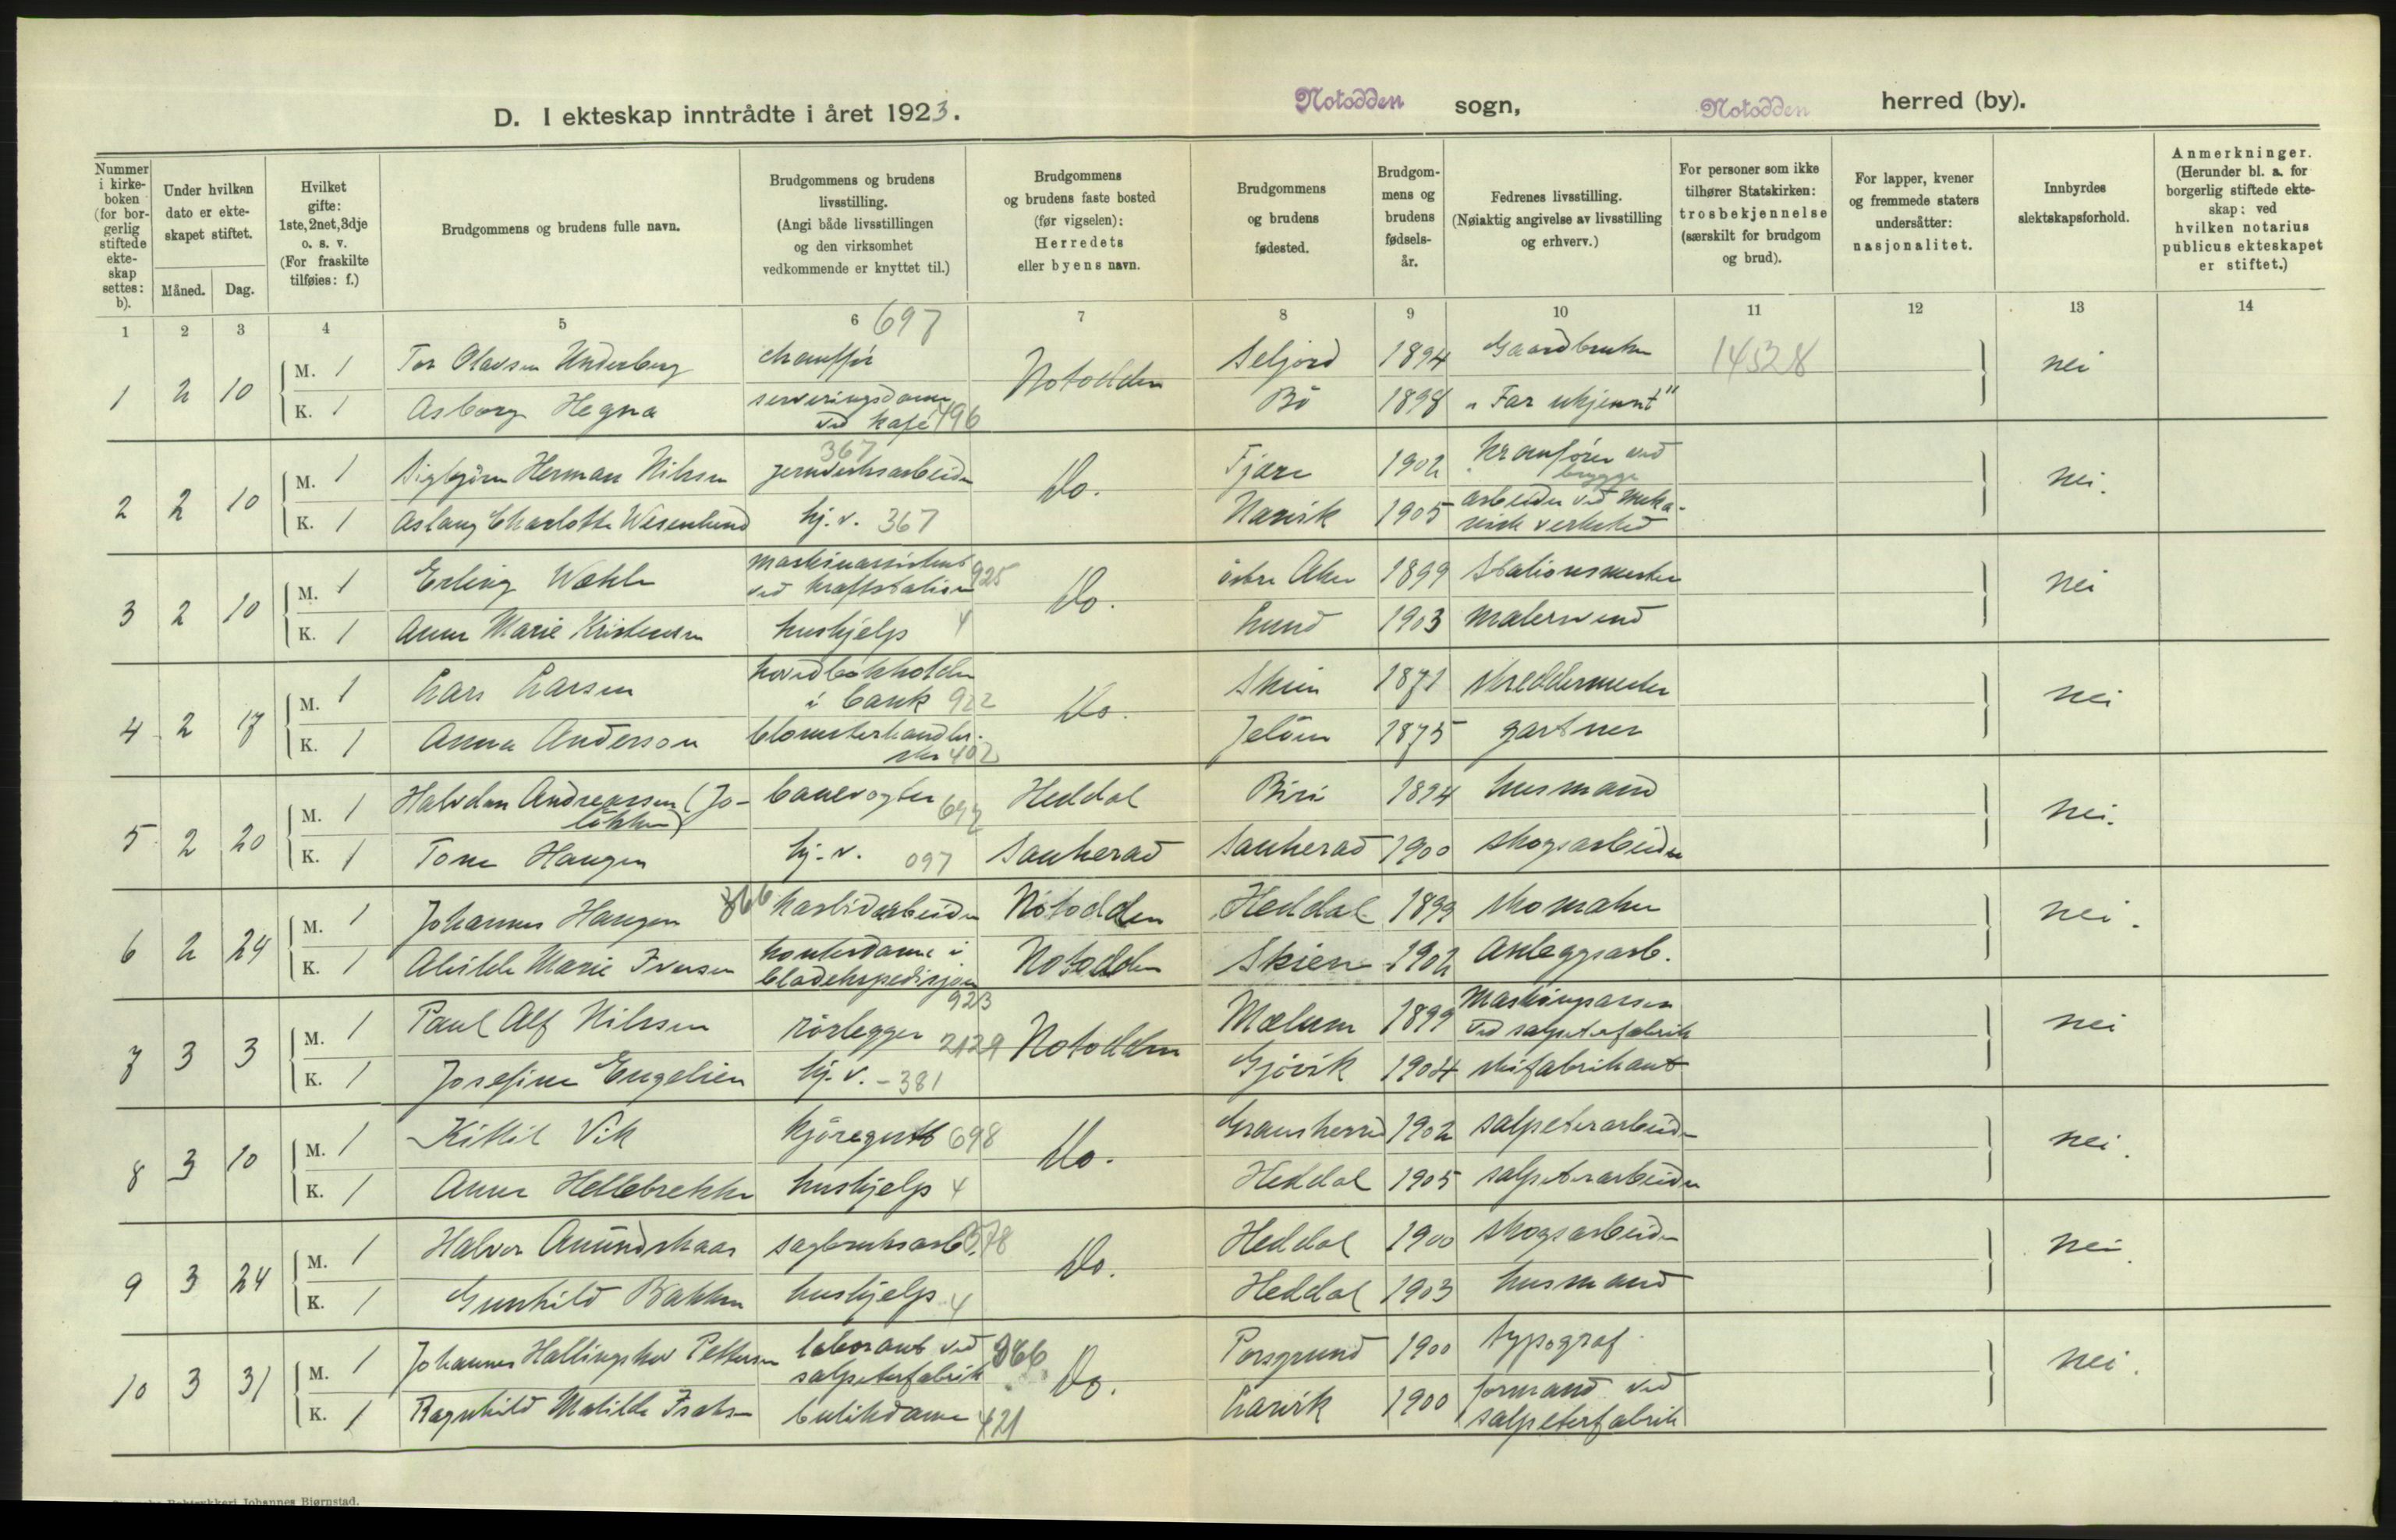 D. I ekteskap inntrådte i året 1923. Notodden sogn, Notodden herred (by).
Nummer i kirke-boken (for bor-gerlig stiftede ekte-skap settes: b).
Under hvilken dato er ekte-skapet stiftet.
Måned. Dag.
Hvilket gifte: 1ste, 2net, 3dje o. s. v. (For fraskilte tilføies: f.)
Brudgommens og brudens fulle navn.
Brudgommens og brudens livsstilling. (Angi både livsstillingen og den virksomhet vedkommende er knyttet til.)
Brudgommens og brudens faste bosted (før vigselen): Herredets eller byens navn.
Brudgommens og brudens fødested.
Brudgom-mens og brudens fødsels-år.
Fedrenes livsstilling. (Nøiaktig angivelse av livsstilling og erhverv.)
For personer som ikke tilhører Statskirken: trosbekjennelse (særskilt for brudgom og brud).
For lapper, kvener og fremmede staters undersåtter: nasjonalitet.
Innbyrdes slektskapsforhold.
Anmerkninger. (Herunder bl. a. for borgerlig stiftede ekte-skap: ved hvilken notarius publicus ekteskapet er stiftet.)
1 2 3 4 5 6 697 7 8 9 10 11 12 13 14
1 2 10 M. 1 Tor Olavsen Underberg chauffør Notodden Seljord 1894 Gaardbruker 14328 nei
K. 1 Asborg Hegna serveringsdame ved kafé 496 Bö 1898 "Far ukjennt"
2 2 10 M. 1 Sigbjörn Herman Nilsen 367 jernverksarbeider Do. Fjære 1902 Kranfører ved brygge nei.
K. 1 Aslaug Charlotte Wesenlund hj. v. 367 Narvik 1905 arbeider ved meka-nisk verksted
3 2 10 M. 1 Erling Wæhle maskinassistent ved kraftstation 925 Do. östre Aker 1899 Stationsmester nei
K. 1 Anne Marie Kristensen hushjelp 4 Lund 1903 malersvend
4 2 17 M. 1 Lars Larsen hovedbokholder i bank 922 Do. Skien 1871 skreddermester nei
K. 1 Anna Anderson blomsterhandler-ske 402 Jelöen 1875 gartner
5 2 20 M. 1 Halvdan Andreassen (Jo-lökken) banevogter 692 Heddal Biri 1894 husmand nei.
K. 1 Tone Haugen hj. v. 097 Sauherad Sauherad 1900 skogsarbeider
6 2 24 M. 1 Johannes Haugen 366 karbidarbeider Notodden Heddal 1899 skomaker nei.
K. 1 Alvilde Marie Iversen kontordame i bladekspedisjon 923 Notodden Skien 1902 Anleggsarb.
7 3 3 M. 1 Paul Alf Nilssen rörlegger 2129 Notodden Mælum 1899 Maskinpasser ved salpeterfabrik nei
K. 1 Josefine Engelien hj. v. - 381 Gjövik 1904 skifabrikant
8 3 10 M. 1 Kittil Vik kjöregutt 698 Do. Gransherred 1902 salpeterarbeider nei.
K. 1 Anne Hellebrekke hushjelp 4 Heddal 1905 salpeterarbeider
9 3 24 M. 1 Halvor Amundskaas sagbruksarb. 378 Do. Heddal 1900 skogsarbeider nei.
K. 1 Gunhild Bakken hushjelp 4 Heddal 1903 husmand
10 3 31 M. 1 Johannes Hallingskov Pettersen laborant ved salpeterfabrik 366 Do. Porsgrund 1900 typograf nei.
K. 1 Ragnhild Matilde butikdame 421 Larvik 1900 formand ved salpeterfabrik
Johannes Bjørnstad.